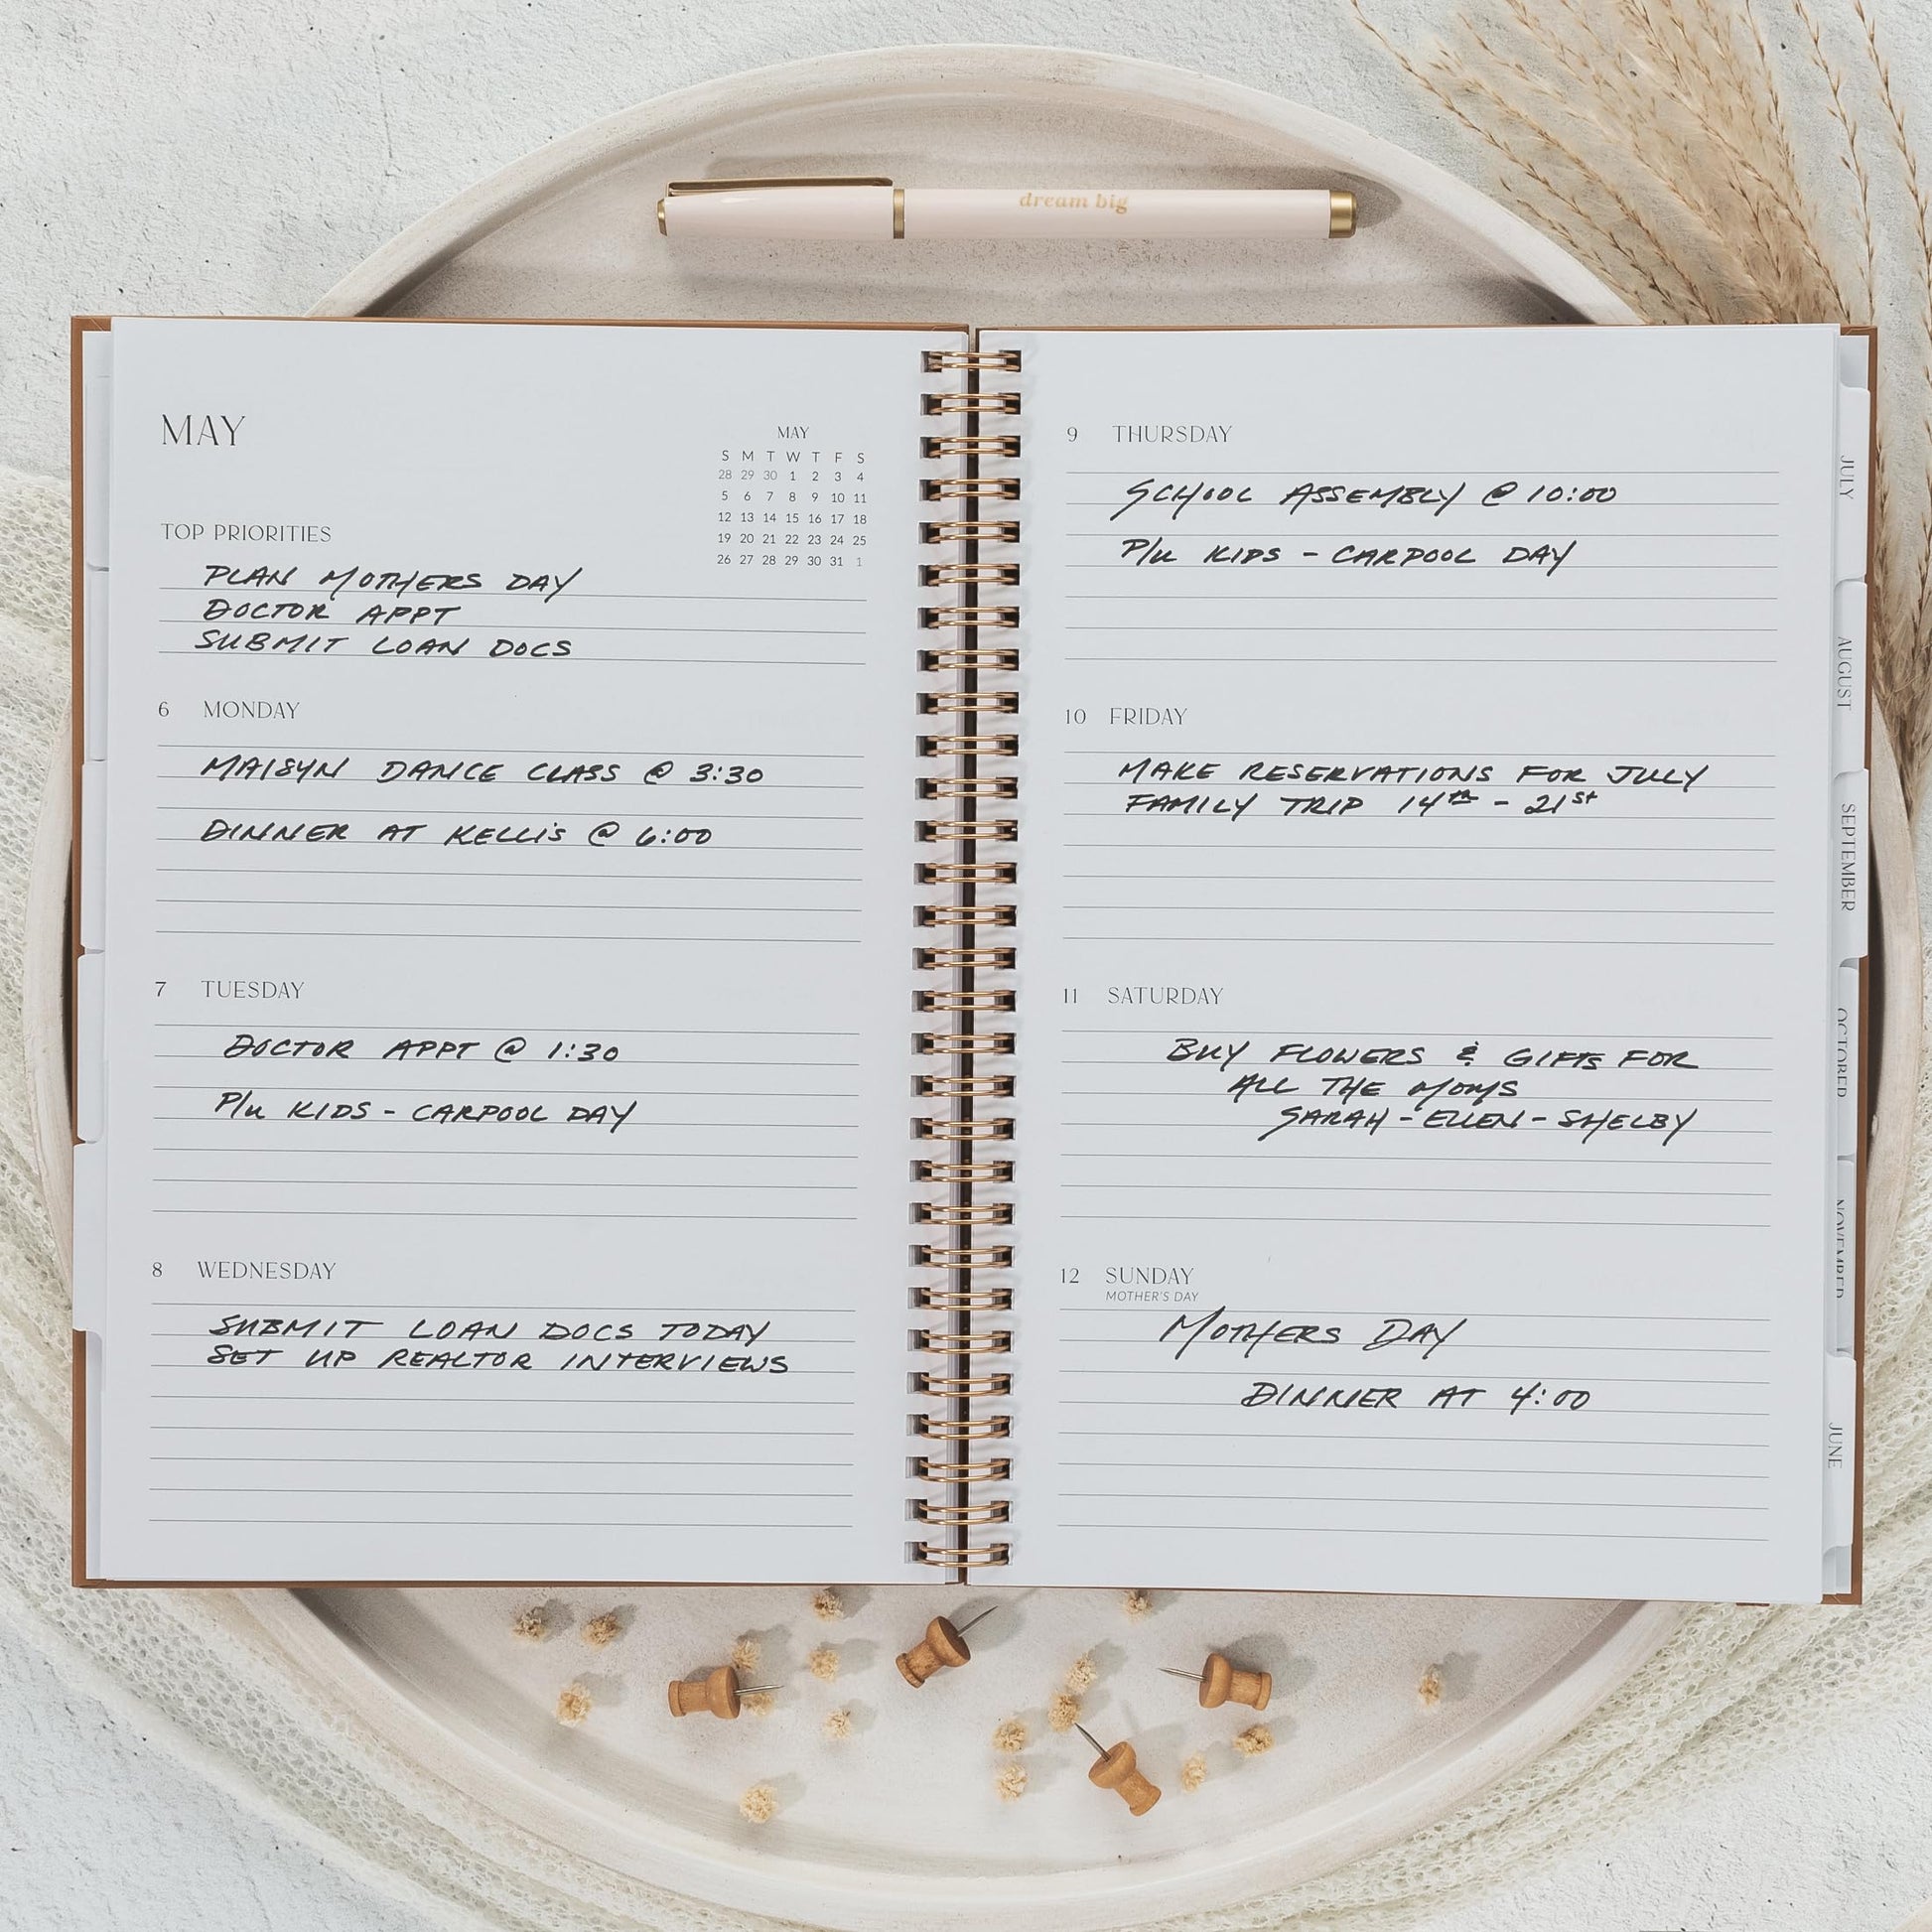 dream big
MAY
MAY
S M T W T F S
28 29 30 1 2 3 4
5 6 7 8 9 10 11
12 13 14 15 16 17 18
19 20 21 22 23 24 25
26 27 28 29 30 31 1
TOP PRIORITIES
PLAN MOTHERS DAY
DOCTOR APPT
SUBMIT LOAN DOCS
6 MONDAY
MAISYN DANCE CLASS @ 3:30
DINNER AT KELLI'S @ 6:00
7 TUESDAY
DOCTOR APPT @ 1:30
P/U KIDS - CARPOOL DAY
8 WEDNESDAY
SUBMIT LOAN DOCS TODAY
SET UP REALTOR INTERVIEWS
9 THURSDAY
SCHOOL ASSEMBLY @ 10:00
P/U KIDS - CARPOOL DAY
10 FRIDAY
MAKE RESERVATIONS FOR JULY
FAMILY TRIP 14th - 21st
11 SATURDAY
BUY FLOWERS & GIFTS FOR
ALL THE MOMS
SARAH - ELLEN - SHELBY
12 SUNDAY
MOTHER'S DAY
MOTHERS DAY
DINNER AT 4:00
JULY
AUGUST
SEPTEMBER
OCTOBER
NOVEMBER
JUNE